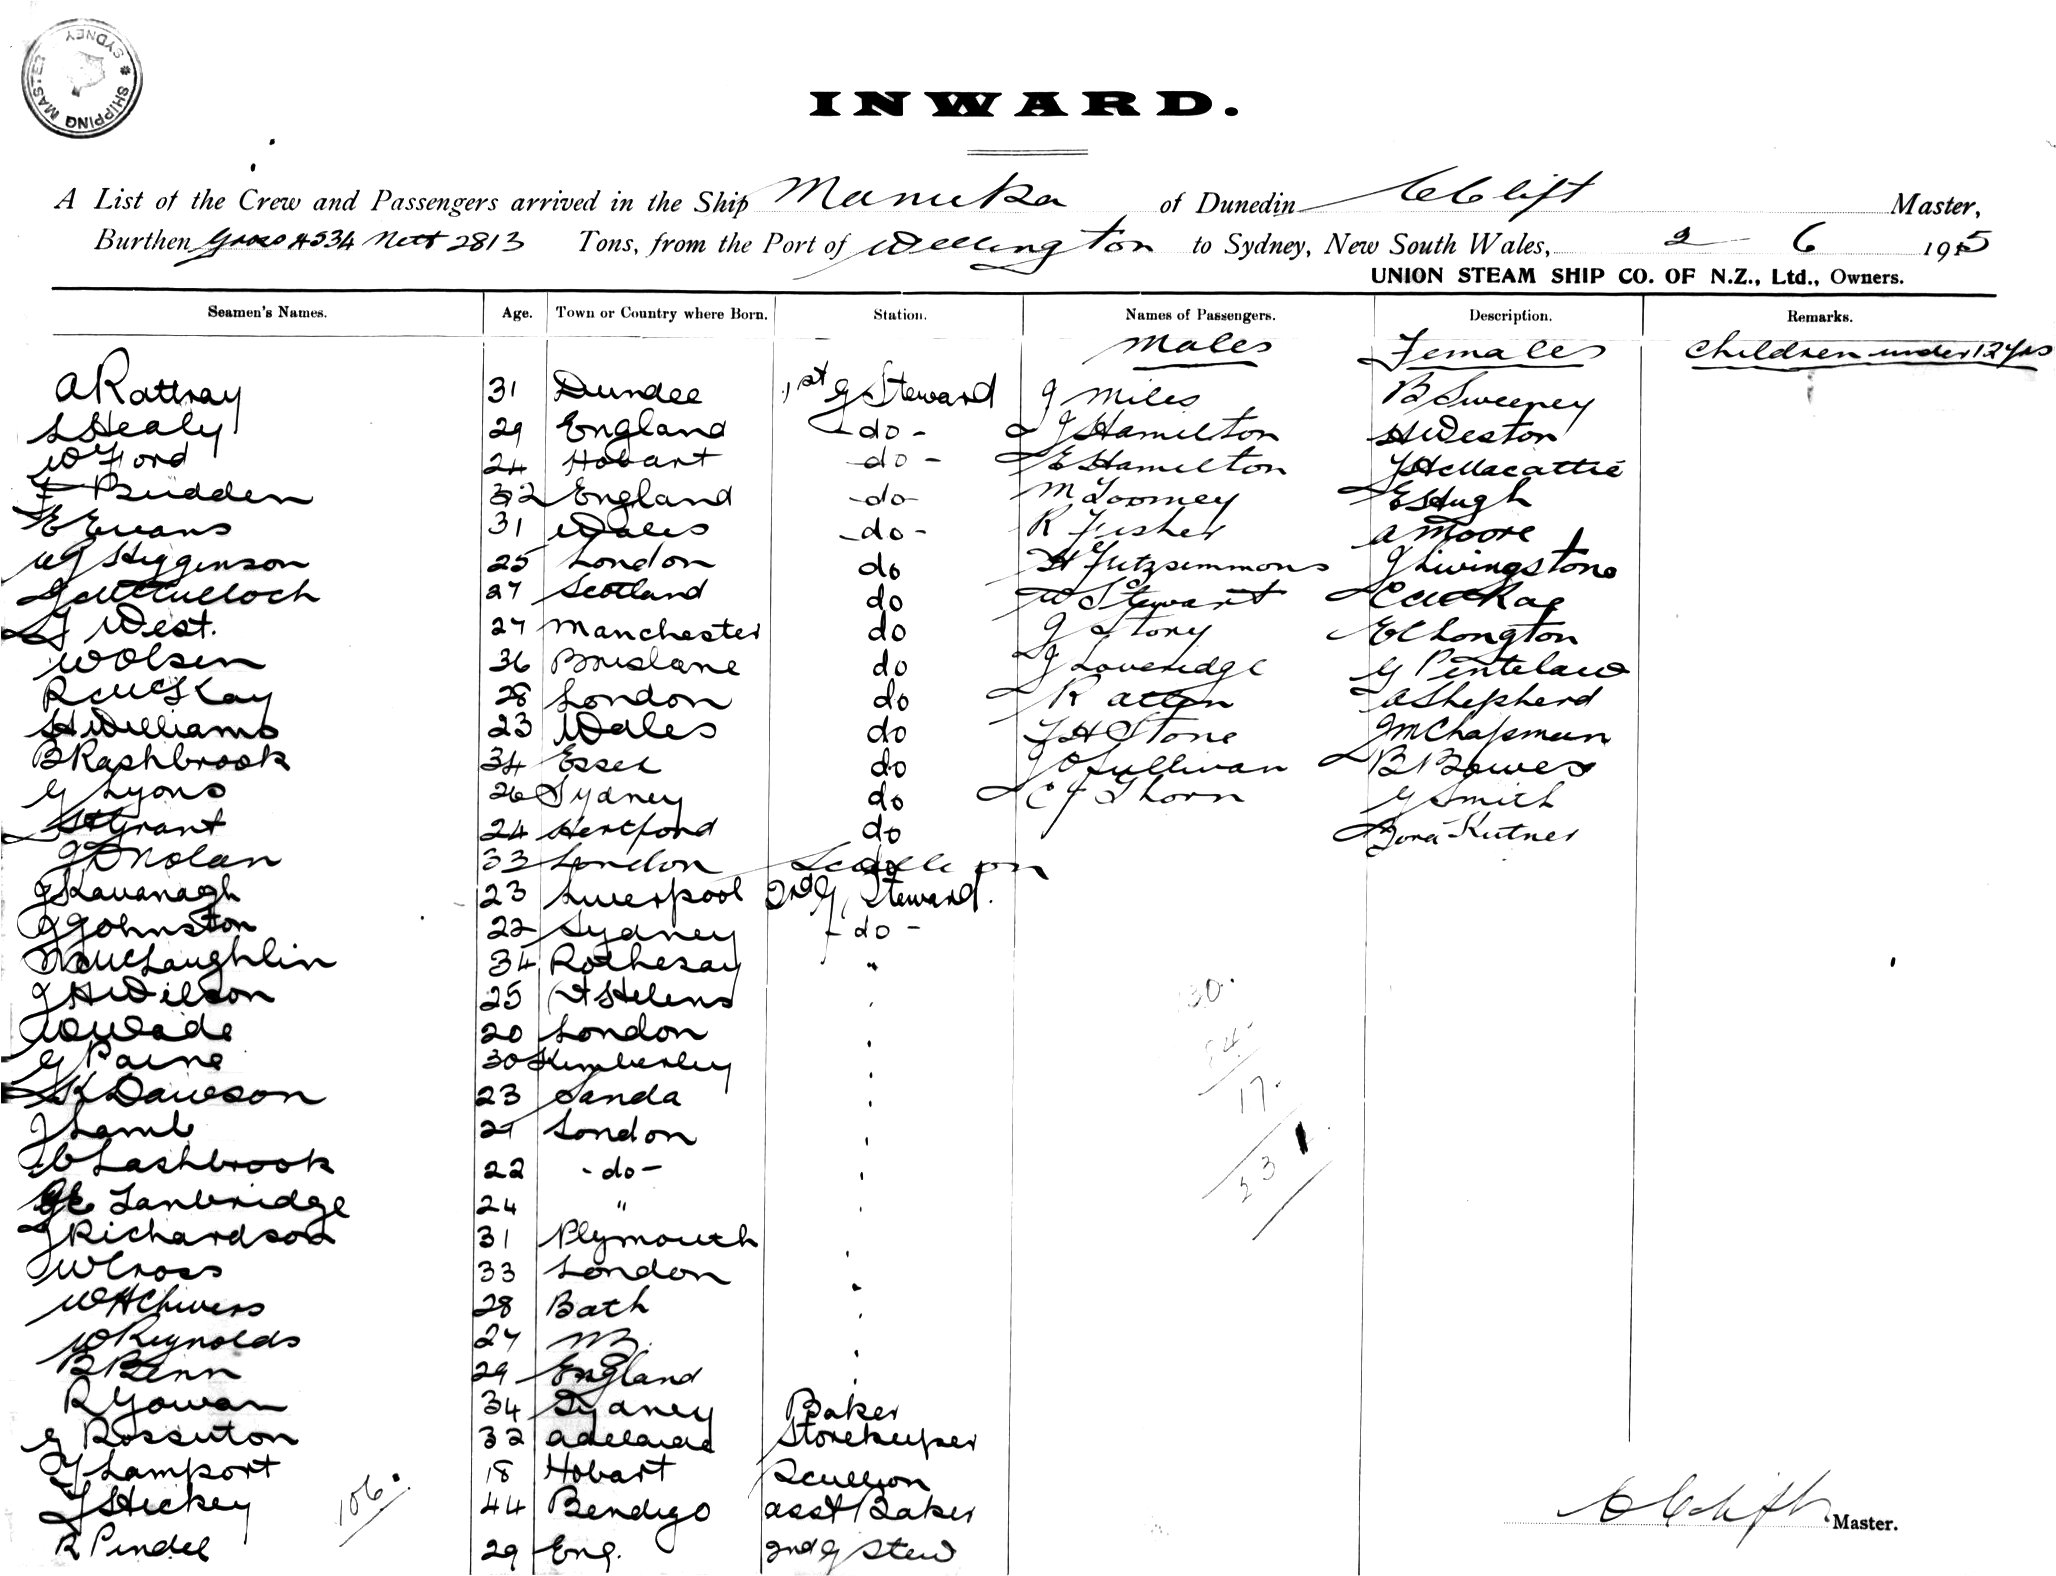 SHIPPING MASTER * SYDNEY
INWARD.
A List of the Crew and Passengers arrived in the Ship Manuka of Dunedin C Clift Master,
Burthen Gross 4534 Nett 2813 Tons, from the Port of Wellington to Sydney, New South Wales, 2 6 1915
UNION STEAM SHIP CO. OF N.Z., Ltd., Owners.
Seamen's Names. Age. Town or Country where Born. Station. Names of Passengers. Description. Remarks.
Males Females Children under 12 yrs
A Rattray 31 Dundee 1st G Steward J Miles B Sweeney
S Healy 29 England -do- J Hamilton H Weston
W Ford 24 Hobart -do- E Hamilton
F Budden 32 England -do- M Toomey E Hugh
E Evans 31 Wales -do- R Fisher A Moore
W J Higginson 25 London do H Fitzsimmons J Livingstone
J McCulloch 27 Scotland do W Stewart C McRae
J West. 27 Manchester do J Story E C Longton
W Olsen 36 Brisbane do J Loveridge G Pentelaw
R McKay 28 London do R Atten A Shepherd
H Williams 23 Wales do F H Stone J M Chapman
B Rashbrook 34 Essex do J O Sullivan B Bowes
G Lyons 26 Sydney do C J Thorn G Smith
H Grant 24 Hertford do Dora Kutner
J O Nolan 33 London
J Kavanagh 23 Liverpool 2nd G. Steward.
J Johnston 22 Sydney -do-
McLaughlin 34 Rothesay "
J H Wilson 25 St Helens
W Wade 20 London
G Paine 30 Kimberley
K Dawson 23 Sanda
J Lamb 21 London
C Lashbrook 22 -do-
Tanbridge 24 "
J Richardson 31 Plymouth
J W Cross 33 London
W H Chivers 28 Bath
W Reynolds 27
B Benn 29 England
R Gowan 34 Sydney Baker
G Rossiton 32 Adelaide Storekeeper
J Lamport 18 Hobart Scullion
J Hickey 44 Bendigo asst Baker
R Pindel 29 Eng. 2nd G Stew
106.
30.
84.
17.
231
C Clift Master.